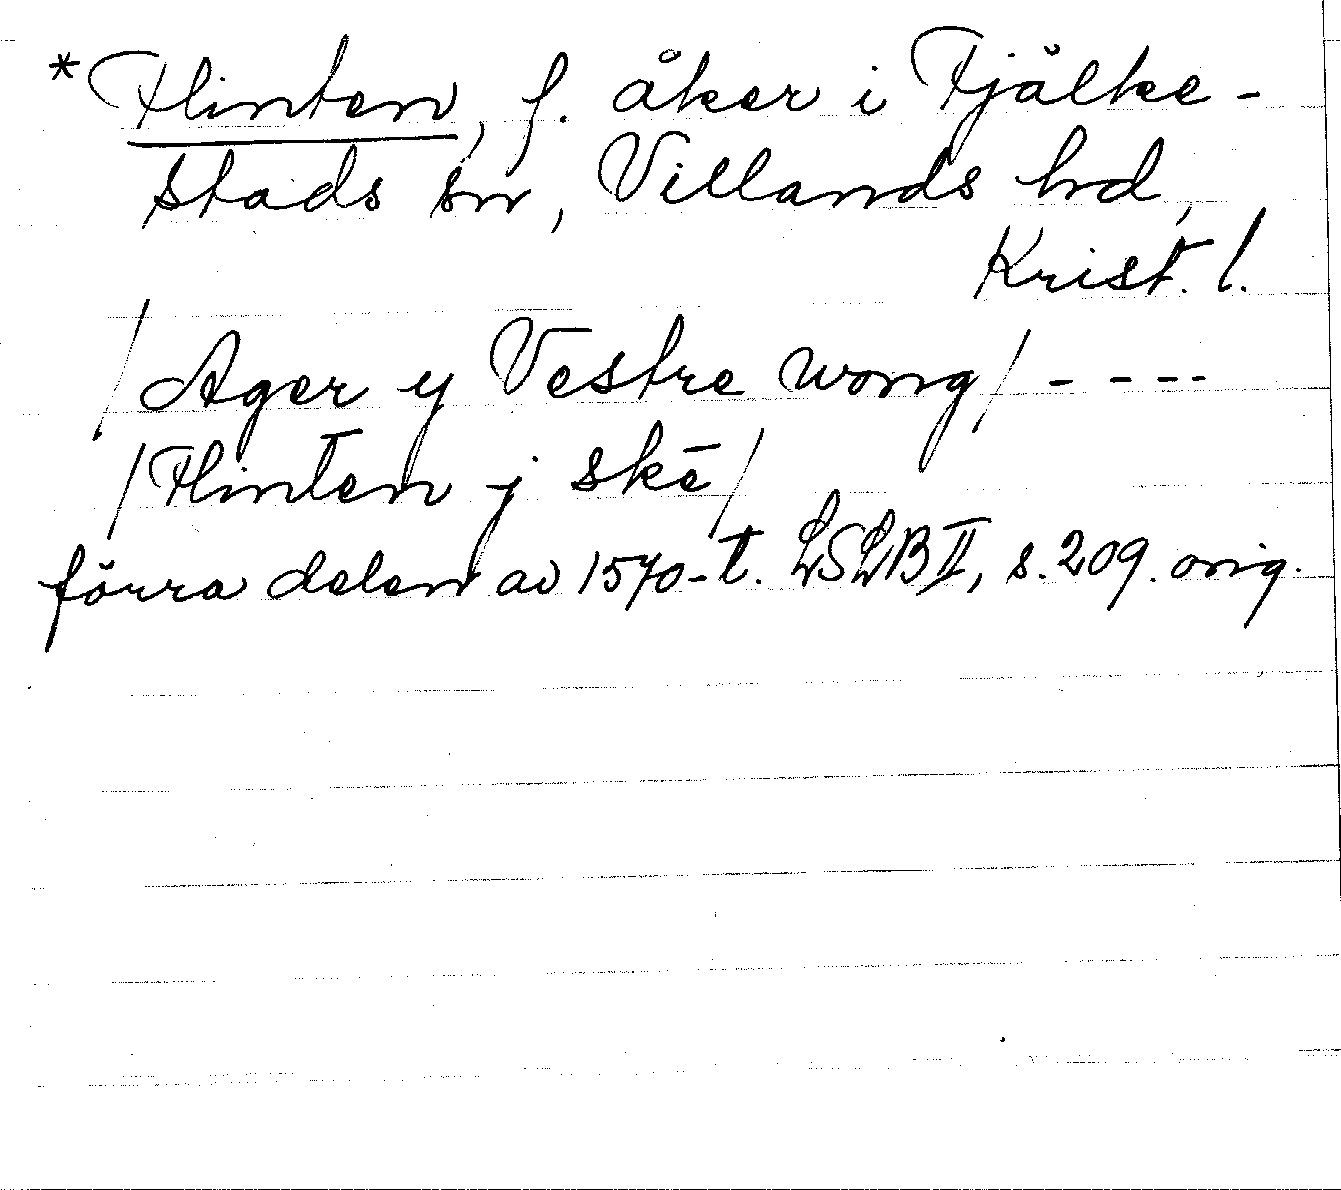 *Flinten, f. åker i Fjälke-
stads sn, Villands hd,
Krist. l.
/Ager y Vestre wong/ - - - -
/Flinten j skē/
förra delen av 1570-t. LSLB II, s. 209. orig.